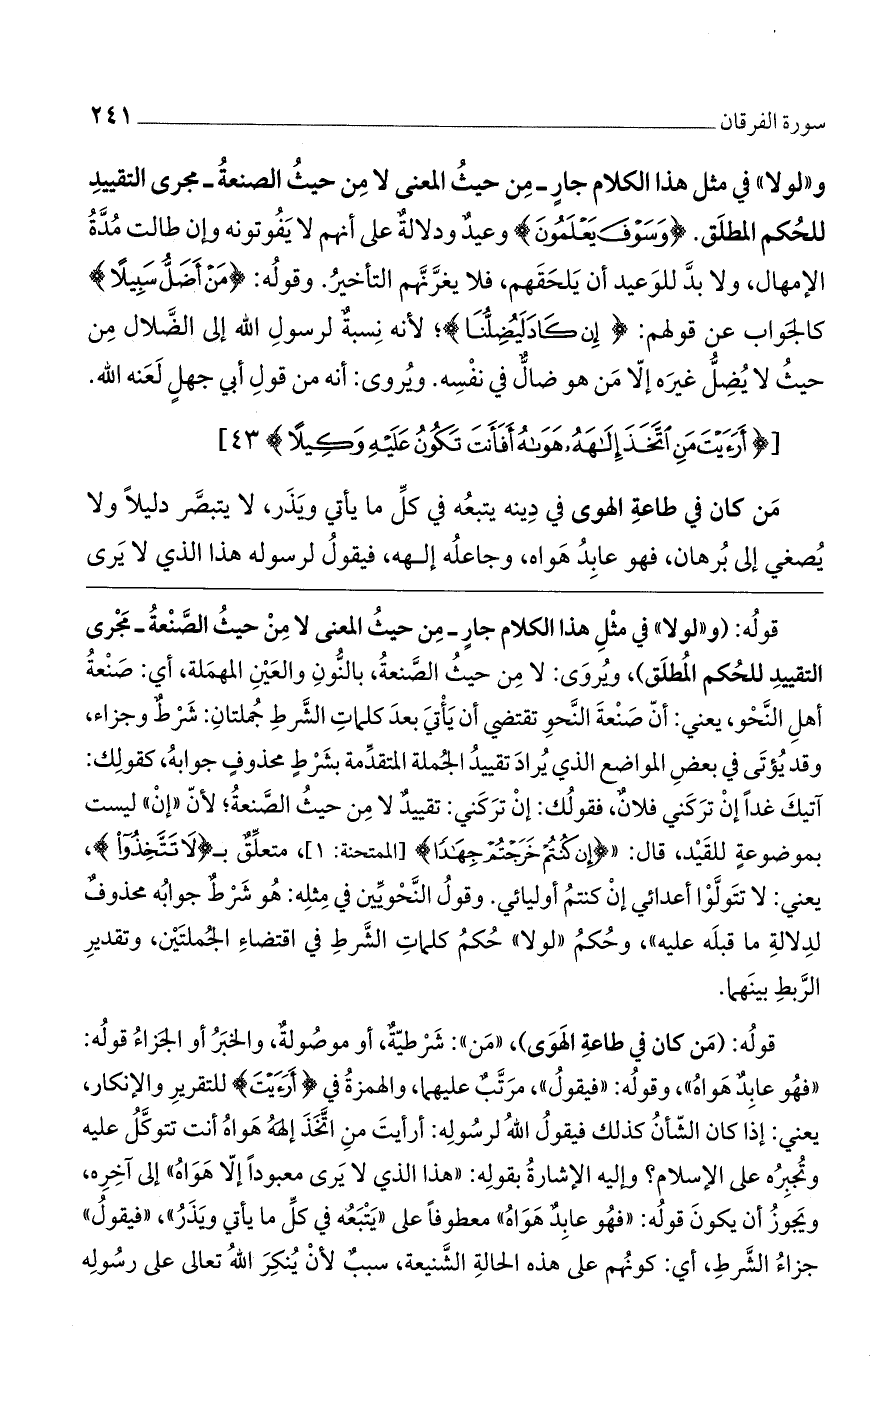 سورة الفرقان ٢٤١
و«لولا» في مثل هذا الكلام جارٍ ـ مِن حيثُ المعنى لا مِن حيثُ الصنعةُ ـ مجرى التقييدِ
للحُكم المطلَق. ﴿وَسَوْفَ يَعْلَمُونَ﴾ وعيدٌ ودلالةٌ على أنهم لا يَفُوتونه وإن طالت مُدَّةُ
الإمهال، ولا بدَّ للوَعيد أن يَلحَقَهم، فلا يغرَّنَّهم التأخيرُ. وقولُه: ﴿مَنْ أَضَلُّ سَبِيلًا﴾
كالجواب عن قولهم: ﴿إِن كَادَ لَيُضِلُّنَا﴾؛ لأنه نِسبةٌ لرسولِ الله إلى الضَّلال مِن
حيثُ لا يُضِلُّ غيرَه إلّا مَن هو ضالٌّ في نفْسِه. ويُروى: أنه من قولِ أبي جهلٍ لَعَنه الله.
[﴿أَرَءَيْتَ مَنِ ٱتَّخَذَ إِلَـٰهَهُۥ هَوَىٰهُ أَفَأَنتَ تَكُونُ عَلَيْهِ وَكِيلًا﴾ ٤٣]
مَن كان في طاعةِ الهوى في دِينه يتبعُه في كلِّ ما يأتي ويَذَر، لا يتبصَّر دليلاً ولا
يُصغي إلى بُرهان، فهو عابِدُ هَواه، وجاعلُه إلـهه، فيقولُ لرسوله هذا الذي لا يَرى
قولُه: (و«لولا» في مثْلِ هذا الكلام جارٍ ـ مِن حيثُ المعنى لا مِنْ حيثُ الصَّنْعةُ ـ مَجْرى
التقييدِ للحُكم المُطلَق)، ويُروَى: لا مِن حيثُ الصَّنعةُ، بالنُّونِ والعَيْنِ المهمَلة، أي: صَنْعةُ
أهلِ النَّحْو، يعني: أنّ صَنْعةَ النَّحوِ تقتضي أن يَأْتيَ بعدَ كلماتِ الشَّرطِ جُملتانِ: شَرْطٌ وجزاء،
وقد يُؤتَى في بعضِ المواضع الذي يُرادُ تقييدُ الجُملة المتقدِّمة بشَرْطٍ محذوفٍ جوابهُ، كقولِك:
آتيكَ غداً إنْ تركَني فلانٌ، فقولُك: إنْ تركَني: تقييدٌ لا مِن حيثُ الصَّنعةُ؛ لأنّ «إنْ» ليست
بموضوعةٍ للقَيْد، قال: «﴿إِن كُنتُمْ خَرَجْتُمْ جِهَـٰدًا﴾ [الممتحنة: ١]، متعلِّقٌ بـ﴿لَا تَتَّخِذُوٓا۟﴾،
يعني: لا تتَولَّوْا أعدائي إنْ كنتمُ أوليائي. وقولُ النَّحْويِّين في مِثلِه: هُو شَرْطٌ جوابُه محذوفٌ
لدِلالةِ ما قبلَه عليه»، وحُكمُ «لولا» حُكمُ كلماتِ الشَّرطِ في اقتضاءِ الجُملتَيْن، وتقديرِ
الرَّبطِ بينَهما.
قولُه: (مَن كان في طاعةِ الهَوَى)، «مَن»: شَرْطيّةٌ، أو موصُولةٌ، والخبَرُ أو الجَزاءُ قولُه:
«فهُو عابدٌ هَواهُ»، وقولُه: «فيقولُ»، مرَتَّبٌ عليهما، والهمزةُ في ﴿أَرَءَيْتَ﴾ للتقريرِ والإنكار،
يعني: إذا كان الشّأنُ كذلك فيقولُ اللهُ لرسُولِه: أرأيتَ منِ اتَّخَذَ إلهَهُ هَواهُ أنت تتوكَّلُ عليه
وتُجبِرُه على الإسلام؟ وإليه الإشارةُ بقولِه: «هذا الذي لا يَرى معبوداً إلّا هَوَاهُ» إلى آخِرِه،
ويجوزُ أن يكونَ قولُه: «فهُو عابِدٌ هَوَاهُ» معطوفاً على «يَتْبَعُه في كلِّ ما يأتي ويَذَرُ»، «فيقولُ»
جزاءُ الشَّرطِ، أي: كونُهم على هذه الحالةِ الشَّنيعة، سببٌ لأنْ يُنكِرَ اللهُ تعالى على رسُولِه